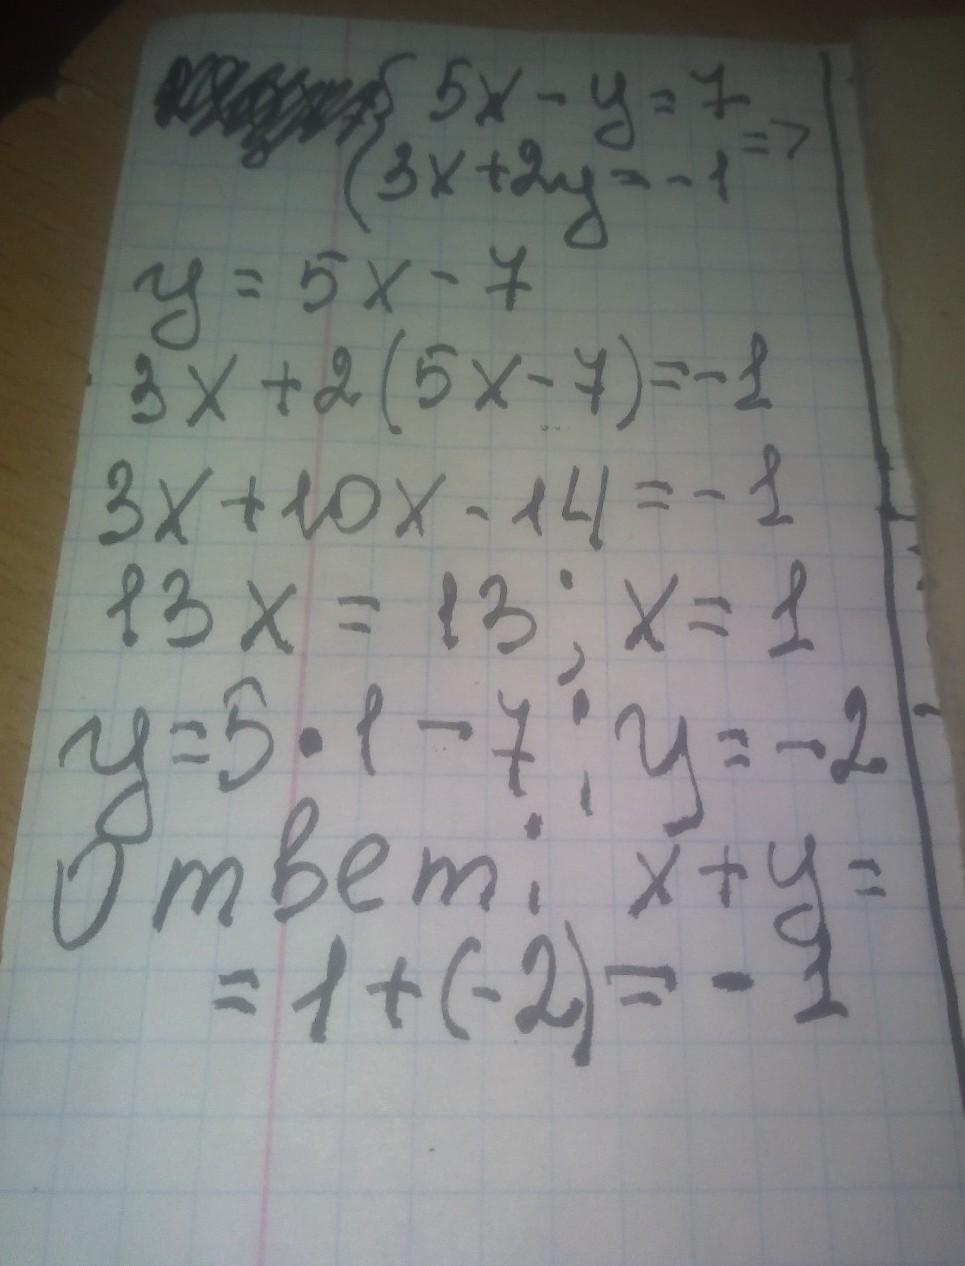 { 5x - y = 7
3x + 2y = -1 =>
y = 5x - 7
3x + 2(5x - 7) = -1
3x + 10x - 14 = -1
13x = 13; x = 1
y = 5 · 1 - 7; y = -2
Ответ: x + y =
= 1 + (-2) = -1